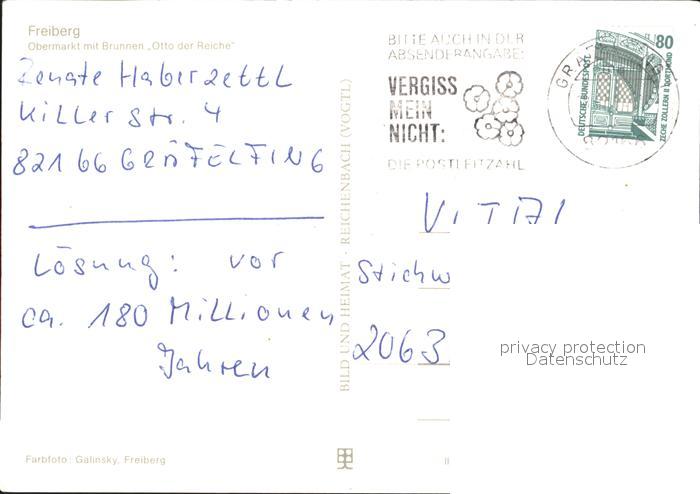 Freiberg
Obermarkt mit Brunnen „Otto der Reiche“
Renate Haberzettl
Killer Str. 4
82166 GRÄFELFING
Lösung: vor
ca. 180 Millionen
Jahren
Farbfoto: Galinsky, Freiberg
BILD UND HEIMAT · REICHENBACH (VOGTL)
BITTE AUCH IN DER
ABSENDERANGABE:
VERGISS
MEIN
NICHT:
DIE POSTLEITZAHL
80
DEUTSCHE BUNDESPOST
ZECHE ZOLLERN II DORTMUND
VITAL
Stichw
2063
privacy protection
Datenschutz